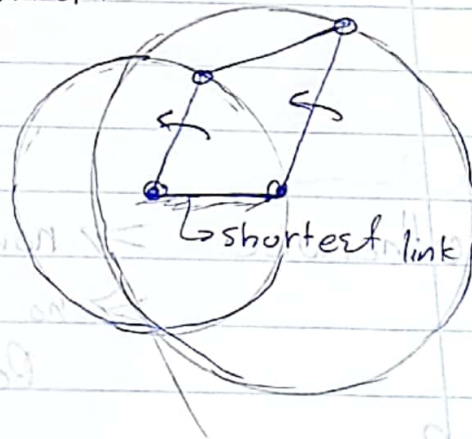 shortest link